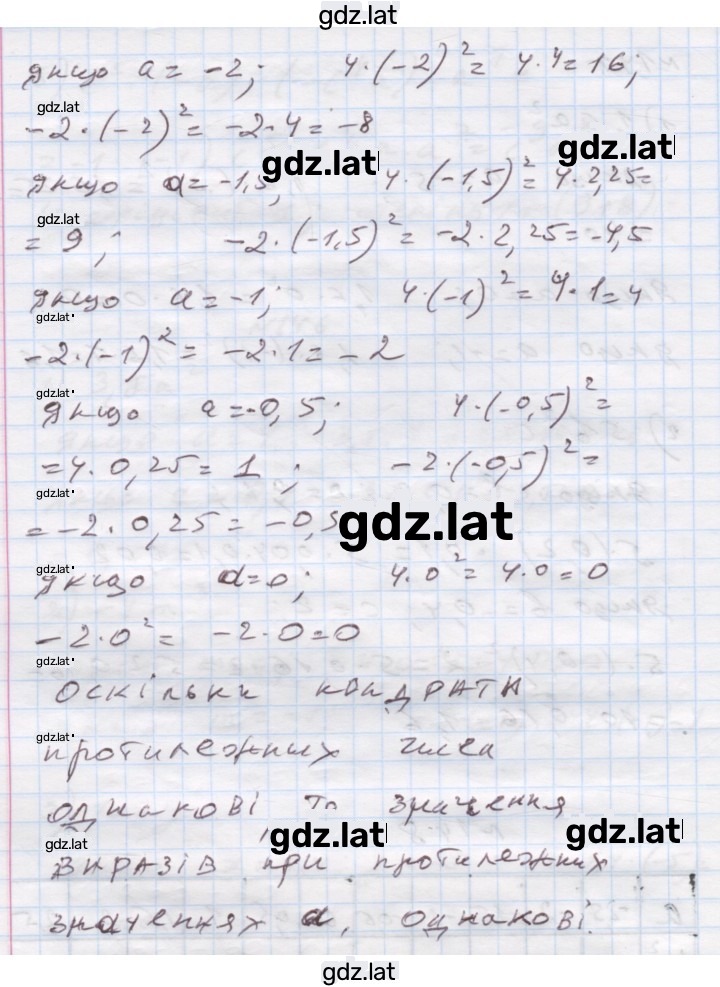 gdz.lat
якщо a = -2; 4·(-2)²= 4·4=16;
gdz.lat
-2·(-2)²= -2·4= -8
gdz.lat gdz.lat
якщо a= -1,5; 4·(-1,5)²= 4·2,25=
gdz.lat
= 9; -2·(-1,5)²= -2·2,25=-4,5
якщо a=-1; 4·(-1)²= 4·1=4
gdz.lat
-2·(-1)²= -2·1= -2
gdz.lat
якщо a=-0,5; 4·(-0,5)²=
gdz.lat
=4·0,25= 1; -2·(-0,5)²=
gdz.lat
= -2·0,25= -0,5
gdz.lat
gdz.lat
якщо a=0; 4·0²= 4·0=0
gdz.lat
-2·0²= -2·0=0
gdz.lat
оскільки квадрати
gdz.lat
протилежних чисел
однакові то значення
gdz.lat gdz.lat gdz.lat
виразів при протилежних
значеннях a, однакові.
gdz.lat